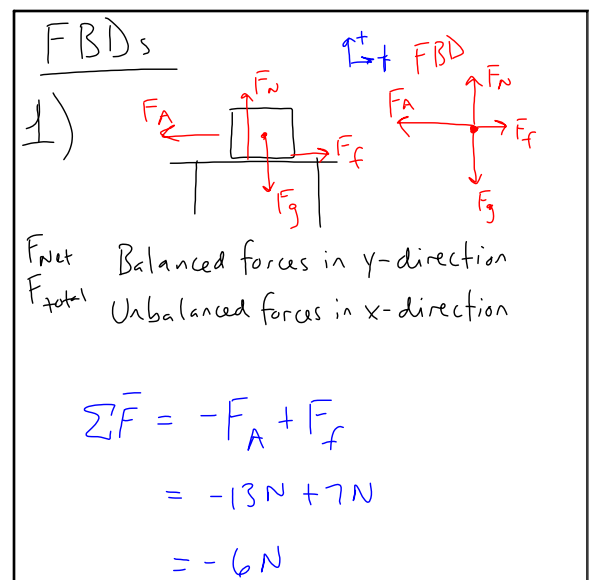 FBDs
+
+ FBD
1)
F_A F_N F_f F_g
F_A F_N F_f F_g
F_Net Balanced forces in y-direction
F_total Unbalanced forces in x-direction
ΣF̄ = -F_A + F_f
= -13N + 7N
= -6N